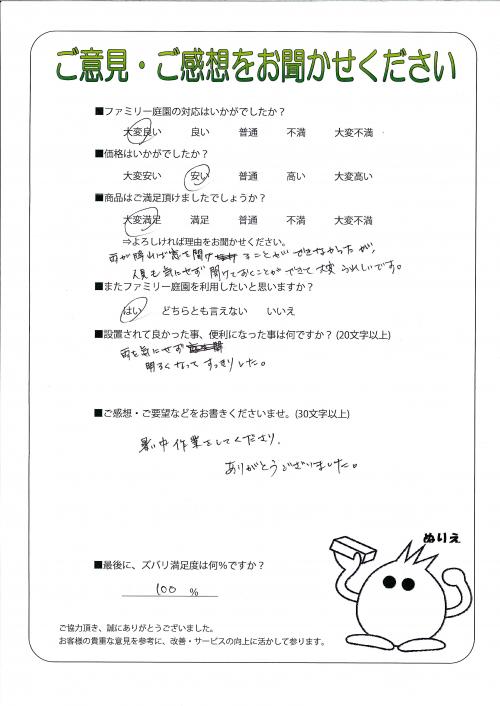 ご意見・ご感想をお聞かせください
■ファミリー庭園の対応はいかがでしたか？
大変良い 良い 普通 不満 大変不満
■価格はいかがでしたか？
大変安い 安い 普通 高い 大変高い
■商品はご満足頂けましたでしょうか？
大変満足 満足 普通 不満 大変不満
⇒よろしければ理由をお聞かせください。
雨が降れば窓を開けることができなかったが、
人目を気にせず開けておくことができて大変うれしいです。
■またファミリー庭園を利用したいと思いますか？
はい どちらとも言えない いいえ
■設置されて良かった事、便利になった事は何ですか？(20文字以上)
雨を気にせず
明るくなってすっきりした。
■ご感想・ご要望などをお書きくださいませ。(30文字以上)
暑い中作業をしてくださり、
ありがとうございました。
ぬりえ
■最後に、ズバリ満足度は何％ですか？
100 %
ご協力頂き、誠にありがとうございました。
お客様の貴重な意見を参考に、改善・サービスの向上に活かして参ります。